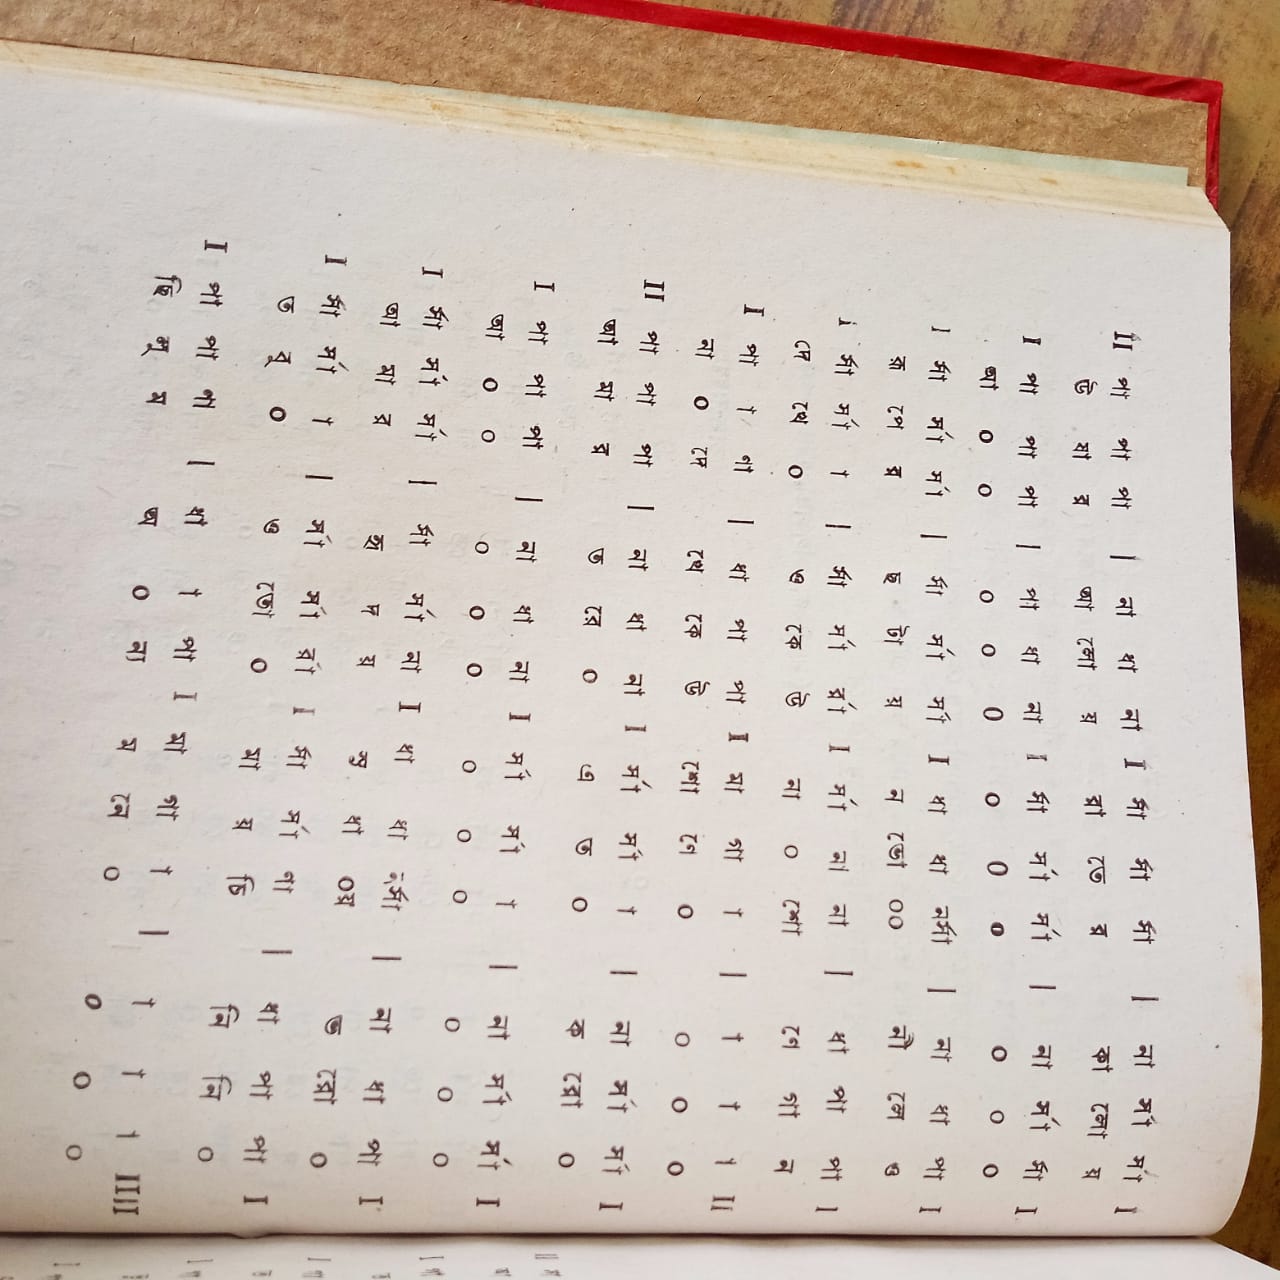 II পা পা পা | না ধা না I র্সা র্সা র্সা | না র্সা র্সা I
উ ষা র আ লো য় রা তে র কা লো য়
I পা পা পা | পা ধা না I র্সা র্সা র্সা | না র্সা র্সা I
আ ০ ০ ০ ০ ০ ০ ০ ০ ০ ০ ০
I র্সা র্সা র্সা | র্সা র্সা র্সা I ধা ধা নর্সা | না ধা পা I
রূ পে র ছ টা য় ন ভো ০০ নী লে ও
I র্সা র্সা া | র্সা র্সা র্রা I র্সা না না | ধা পা পা I
দে খে ০ ও কে উ না ০ শো গে গা ন
I পা া পা | ধা পা পা I মা গা া | া া া II
না ০ দে খে কে উ শো নে ০ ০ ০ ০
II পা পা পা | না ধা না I র্সা র্সা া | না র্সা র্সা I
আ মা র ত রে ০ এ ত ০ ক রো ০
I পা পা পা | না ধা না I র্সা র্সা া | না র্সা র্সা I
আ ০ ০ ০ ০ ০ ০ ০ ০ ০ ০ ০
I র্সা র্সা র্সা | র্সা র্সা না I ধা ধা | না ধা পা I
আ মা র হৃ দ য় সু ধা ০য় ভ রো ০
I র্সা র্সা া | র্সা র্সা র্রা I র্সা র্সা পা | ধা পা পা I
ত বু ০ ও তো ০ মা য় চি নি নি ০
I পা পা পা | ধা া পা I মা গা া | া া া IIII
ছি লু ম অ ০ ন্য ম নে ০ ০ ০ ০